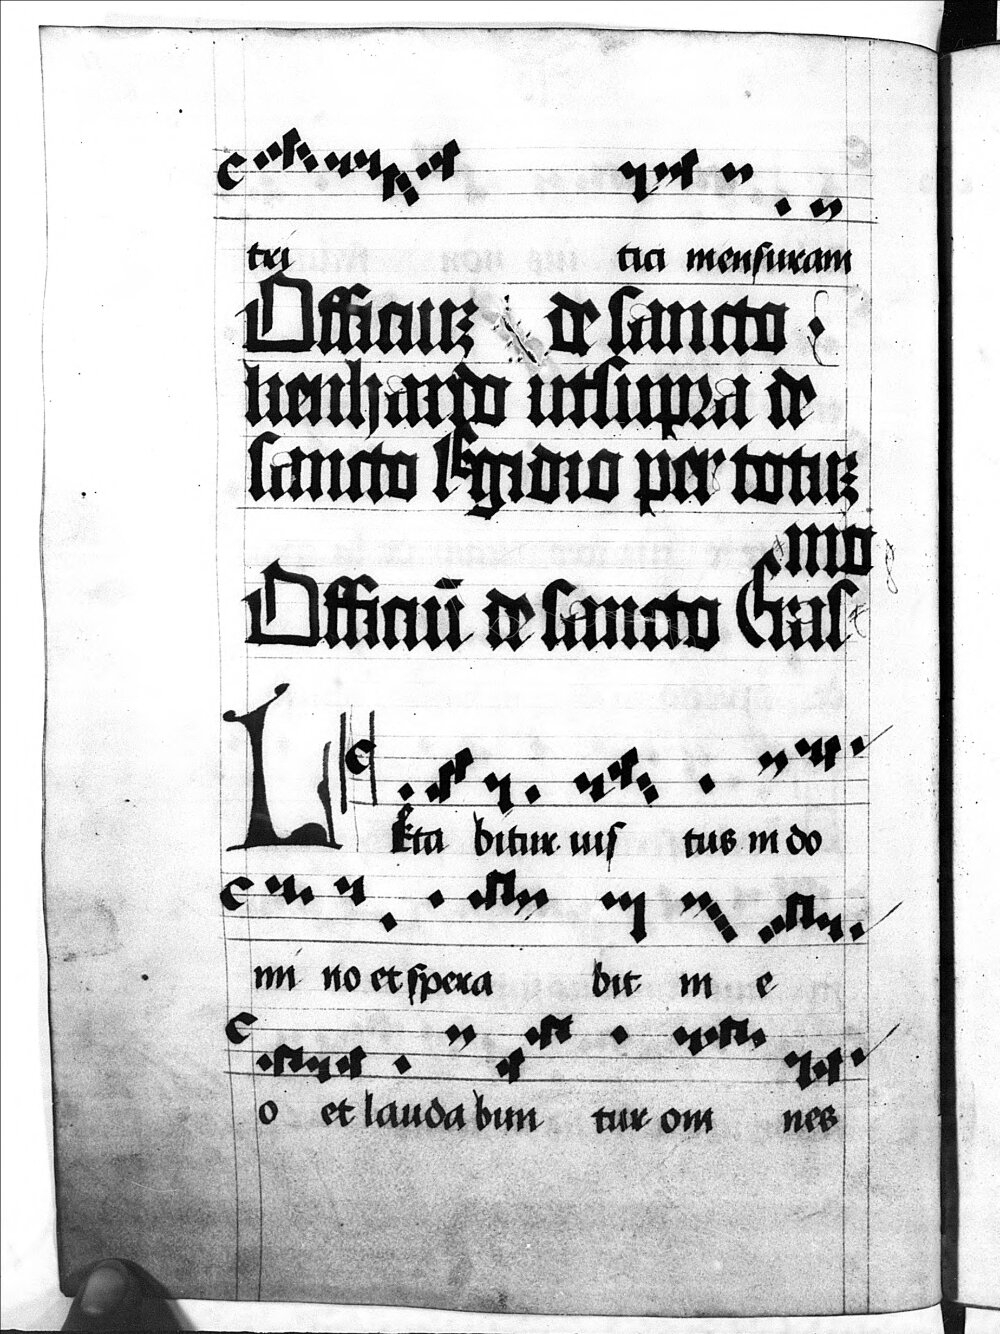 tri tici mensuram
Officiuʒ de sancto
lienhardo utsupra de
sancto Egidio per totuʒ
mo
Officiū de sancto Eras
LEta bitur uis tus in do
mi no et spera bit in e
o et lauda bun tur om nes